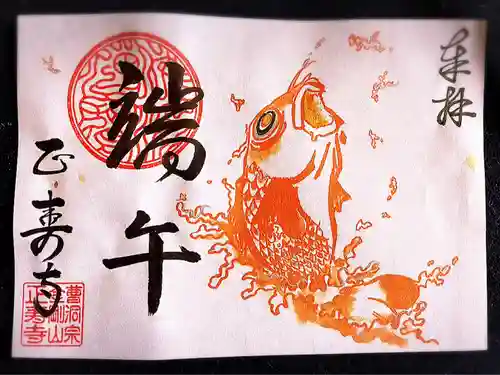 奉拝
端午
正寿寺
曹洞宗
正寿寺